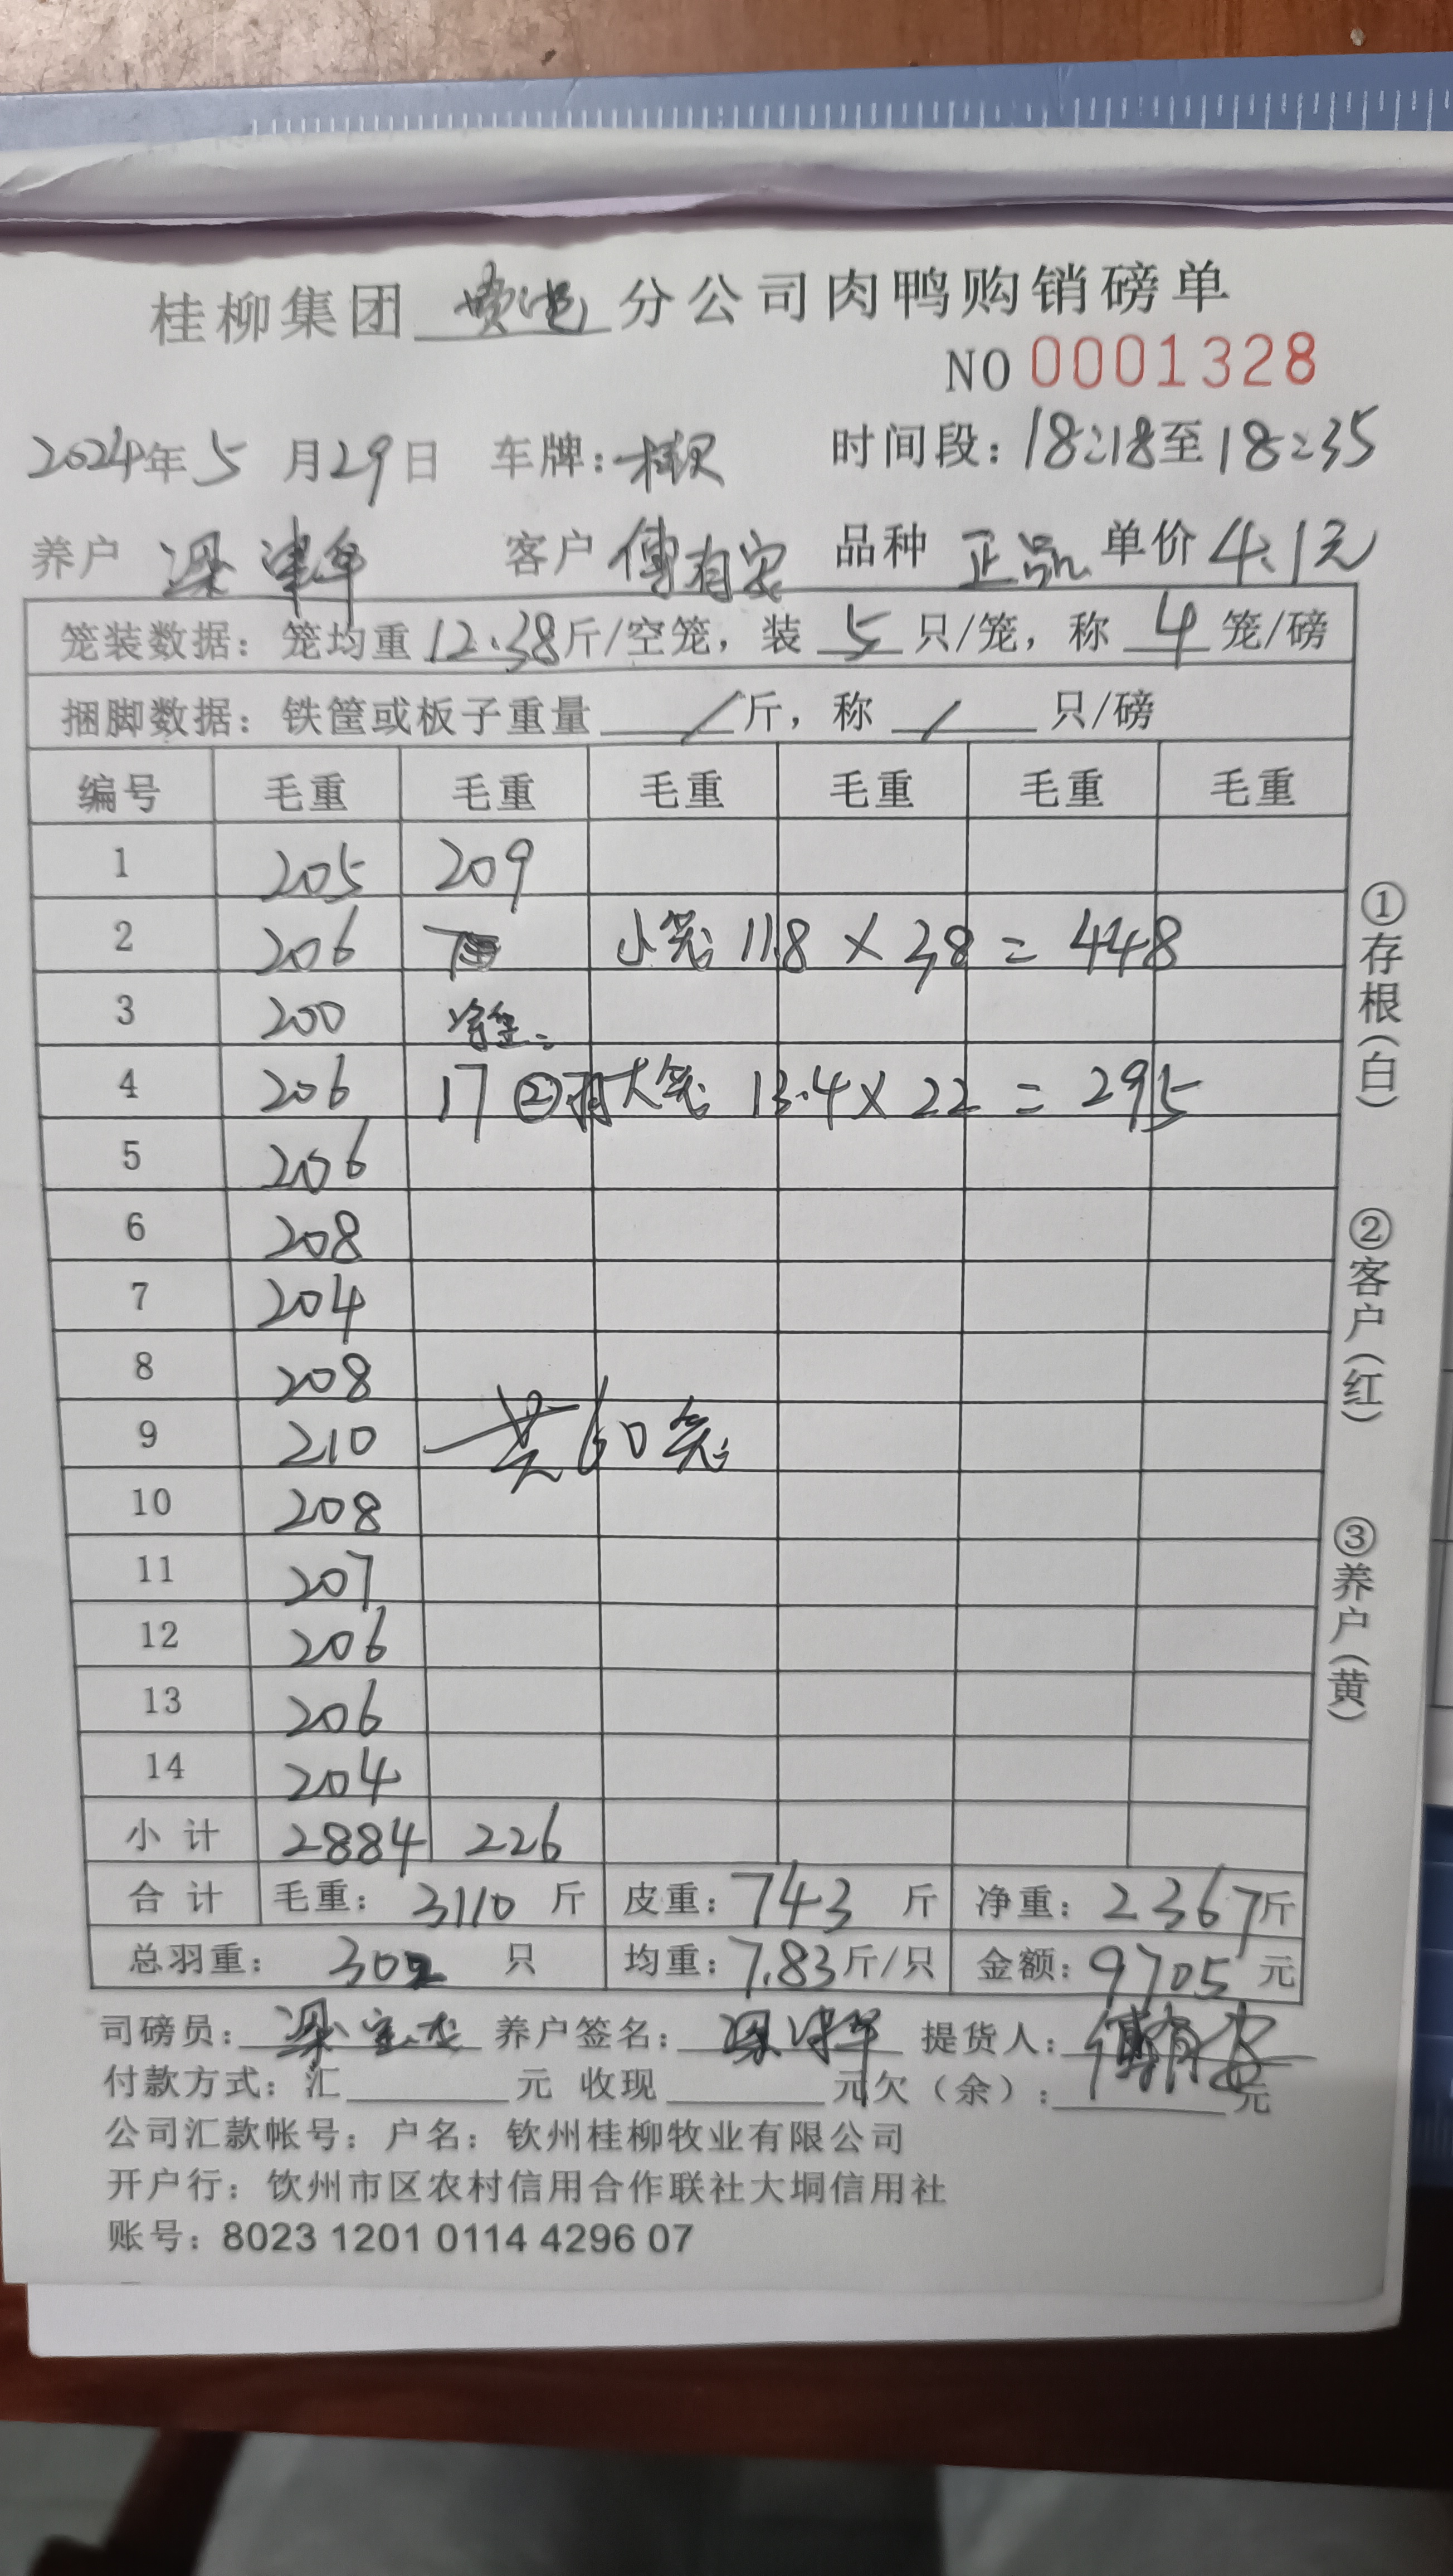 桂柳集团 分公司肉鸭购销磅单
NO 0001328
2024年5月29日 车牌: 时间段:18:18至18:35
养户 梁 客户 傅有安 品种 正品 单价 4.1元
笼装数据:笼均重12.38斤/空笼,装 5 只/笼,称 4 笼/磅
捆脚数据:铁筐或板子重量 / 斤,称 / 只/磅
编号 毛重 毛重 毛重 毛重 毛重 毛重
1 205 209
2 206 小笼 11.8 × 38 = 448
3 200 净重:
4 206 17 ② 大笼 13.4 × 22 = 295
5 206
6 208
7 204
8 208
9 210 共60笼
10 208
11 207
12 206
13 206
14 204
小计 2884 226
合计 毛重: 3110 斤 皮重:743 斤 净重:2367斤
总羽重: 302 只 均重:7.83斤/只 金额:9705元
司磅员: 梁 养户签名: 梁 提货人: 傅有安
付款方式:汇 元 收现 元欠(余): 元
公司汇款帐号:户名:钦州桂柳牧业有限公司
开户行:饮州市区农村信用合作联社大垌信用社
账号:8023 1201 0114 4296 07
①存根(白)
②客户(红)
③养户(黄)